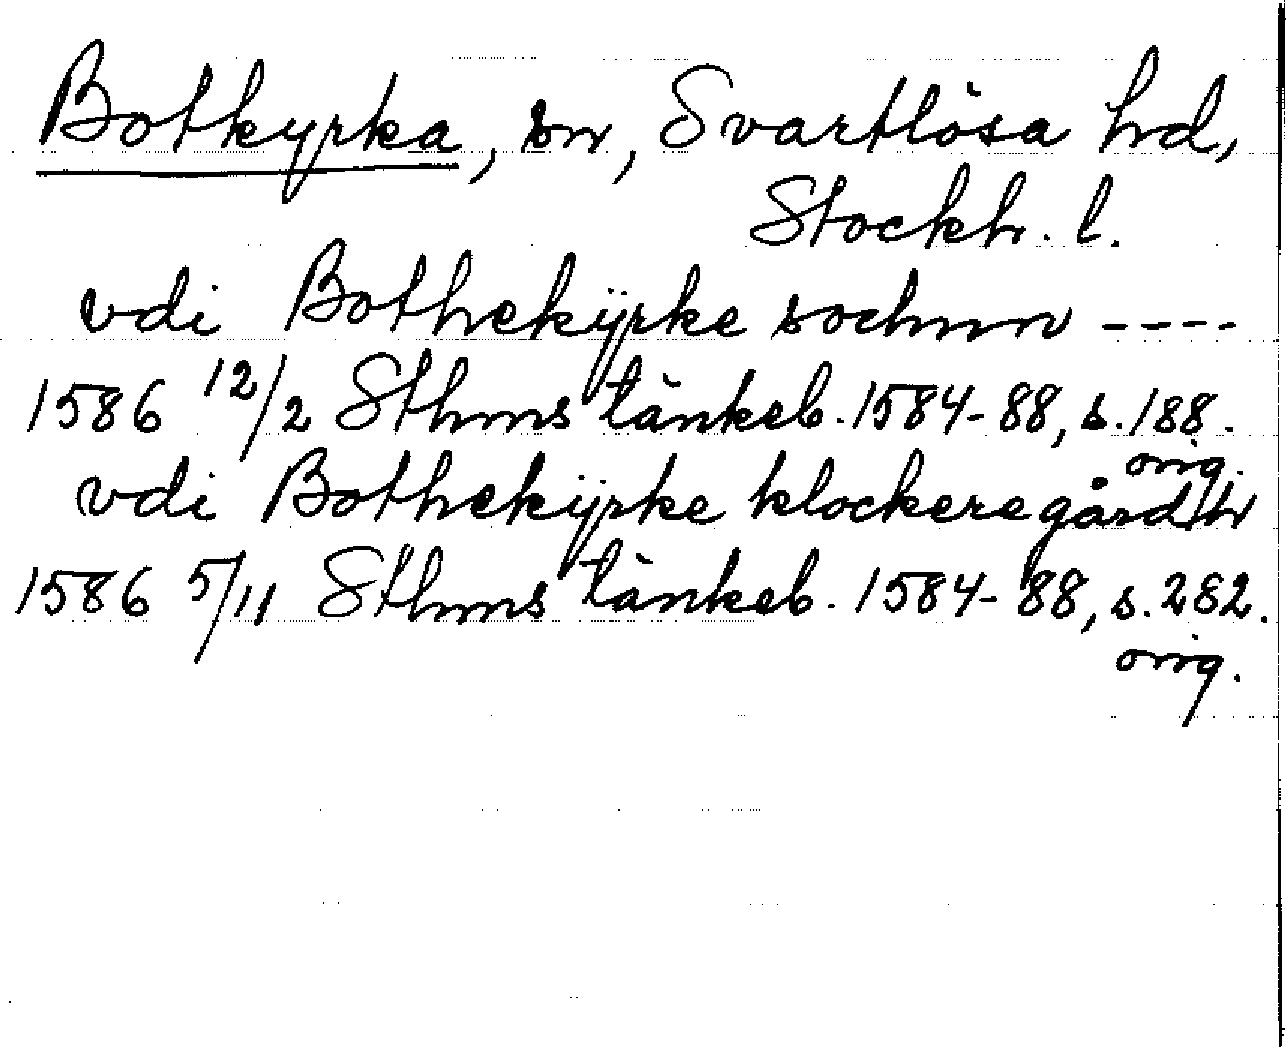 Botkyrka, sn, Svartlösa hd,
Stockh. l.
vdi Bothekÿrke sochnn ----
1586 12/2 Sthms tänkeb. 1584-88, s. 188.
orig.
vdi Bothekÿrke klockeregårdh
1586 5/11 Sthms tänkeb. 1584-88, s. 282.
orig.